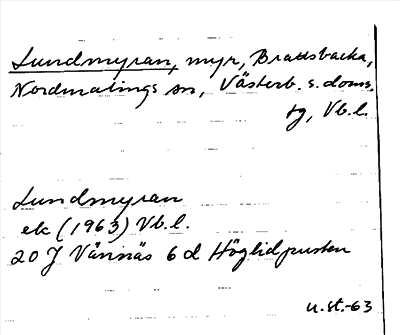 Lundmyran, myr, Brattsbacka,
Nordmalings sn, Västerb. s. doms.
tg, Vb.l.
Lundmyran
ek (1963) Vb.l.
20 J Vännäs 6 d Höglidpusten
u.st.-63